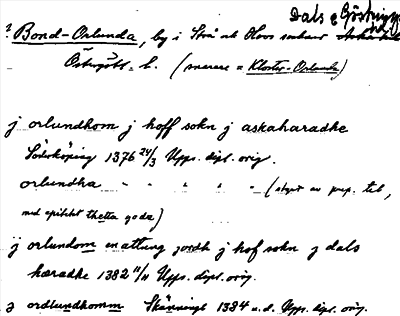 Dals o Göstrings hd
? Bond-Orlunda, by i Strå ok Hovs socknar
Östergötl. l. (numera = Kloster-Orlunda)
j orlundhom j hoff sokn j askaharadhe
Söderköping 1376 24/3 Upps. dipl. orig.
orlundha " " " " " (styrt av prep. til,
med epitetet thetta goda)
ij orlundom en attung jordh j hof sokn j dals
haradhe 1382 11/11 Upps. dipl. orig.
j ordlundhomm Skänninge 1384 u.d. Upps. dipl. orig.